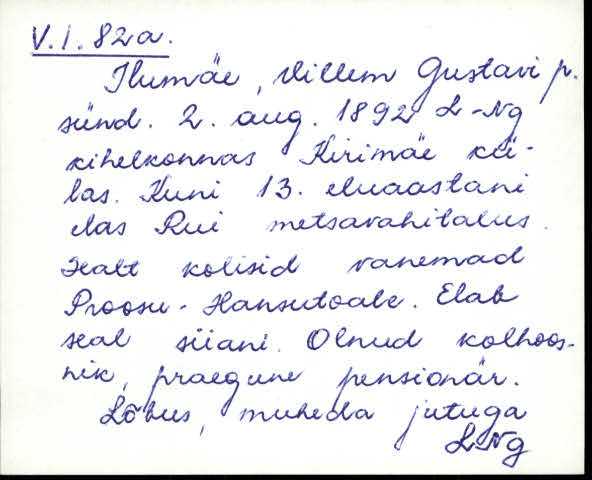 V.I. 82a.
Ilumäe, Villem Gustavi p.
sünd. 2. aug. 1892 L-Ng
kihelkonnas Kirimäe kü-
las. Kuni 13. eluaastani
elas Rui metsavahitalus.
Sealt kolisid vanemad
Proosu-Hansutoale. Elab
seal siiani. Olnud kolhoos-
nik, praegune pensionär.
Lõbus, muheda jutuga
L-Ng